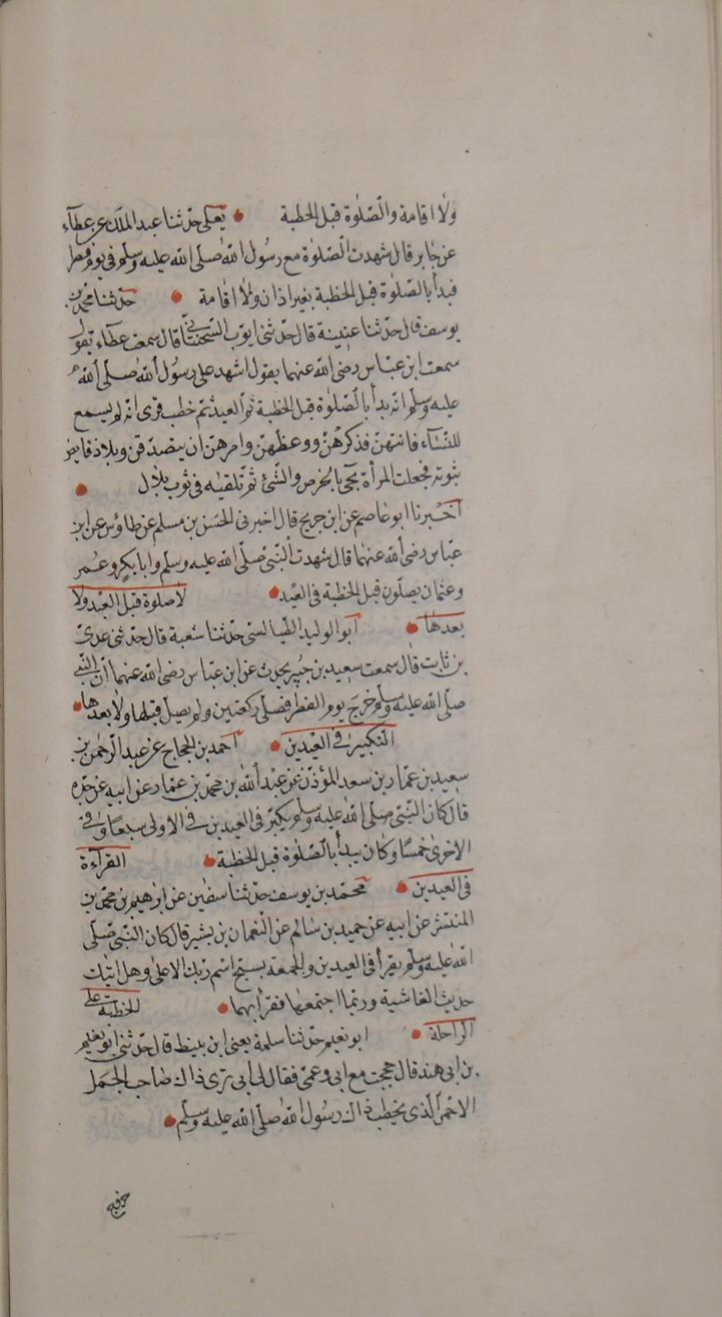 ولا اقامة والصلوة قبل الخطبة • يعلى حدثنا عبد الملك عن عطاء
عن جابر قال شهدت الصلوة مع رسول الله صلى الله عليه وسلم في يوم فطر
فبدأ بالصلوة قبل الخطبة بغير اذان ولا اقامة • حدثنا محمد بن
يوسف قال حدثنا عيينة قال حدثني ايوب السختياني قال سمعت عطاء يقول
سمعت ابن عباس رضى الله عنهما يقول اشهد على رسول الله صلى الله
عليه وسلم انه بدأ بالصلوة قبل الخطبة يوم العيد ثم خطب فرى انه لم يسمع
للنساء فاتتهن فذكرهن ووعظهن وامرهن ان يتصدقن وبلال قابض
بثوبه فجعلت المرأة تجئ بالخرص والشئ ثم تلقيه في ثوب بلال •
اخبرنا ابو عاصم عن ابن جريج قال اخبرنى الحسن بن مسلم عن طاؤس عن ابن
عباس رضى الله عنهما قال شهدت النبى صلى الله عليه وسلم وابا بكر وعمر
وعثمان يصلون قبل الخطبة في العيد • لا صلوة قبل العيد ولا
بعدها • ابو الوليد الطيالسى حدثنا شعبة قال حدثنى عدى
بن ثابت قال سمعت سعيد بن جبير يحدث عن ابن عباس رضى الله عنهما ان النبى
صلى الله عليه وسلم خرج يوم الفطر فصلى ركعتين ولم يصل قبلها ولا بعدها •
التكبير في العيدين • احمد بن الحجاج عن عبد الرحمن بن
سعيد بن عمار بن سعد المؤذن عن عبد الله بن محمد بن عمار عن ابيه عن جده
قال كان النبى صلى الله عليه وسلم يكبر في العيدين في الاولى سبعا وفي
الاخرى خمسا وكان يبدأ بالصلوة قبل الخطبة • القراءة
في العيدين • محمد بن يوسف حدثنا سفين عن ابرهيم بن محمد بن
المنتشر عن ابيه عن حبيد بن سالم عن النعمان بن بشير قال كان النبى صلى
الله عليه وسلم يقرأ في العيدين والجمعة بسبح اسم ربك الاعلى وهل اتيك
حديث الغاشية وربما اجتمعا فقرأ بهما • الخطبة على
الراحلة • ابو نعيم حدثنا سلمة يعنى ابن نبيط قال حدثنى ابو نعيم
بن ابى هند قال حججت مع ابى وعمى فقال لى ابى ترى ذاك صاحب الجمل
الاحمر الذى يخطب ذاك رسول الله صلى الله عليه وسلم •